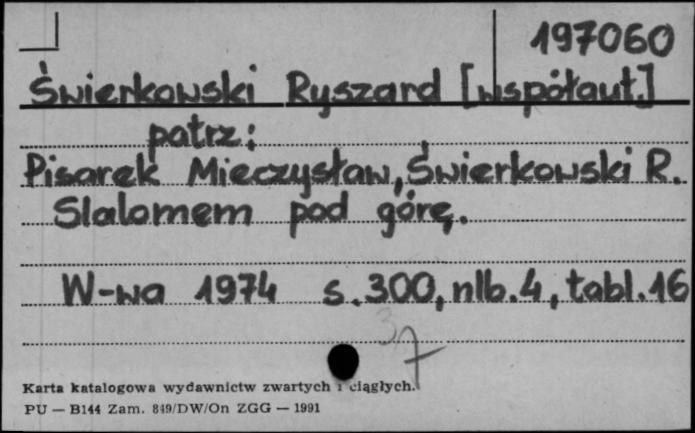 197060
Świerkowski Ryszard [współaut.]
patrz:
Pisarek Mieczysław, Świerkowski R.
Slalomem pod górę.
W-wa 1974 s. 300, nlb. 4, tabl. 16
37
Karta katalogowa wydawnictw zwartych i ciągłych.
PU — B144 Zam. 849/DW/On ZGG — 1991